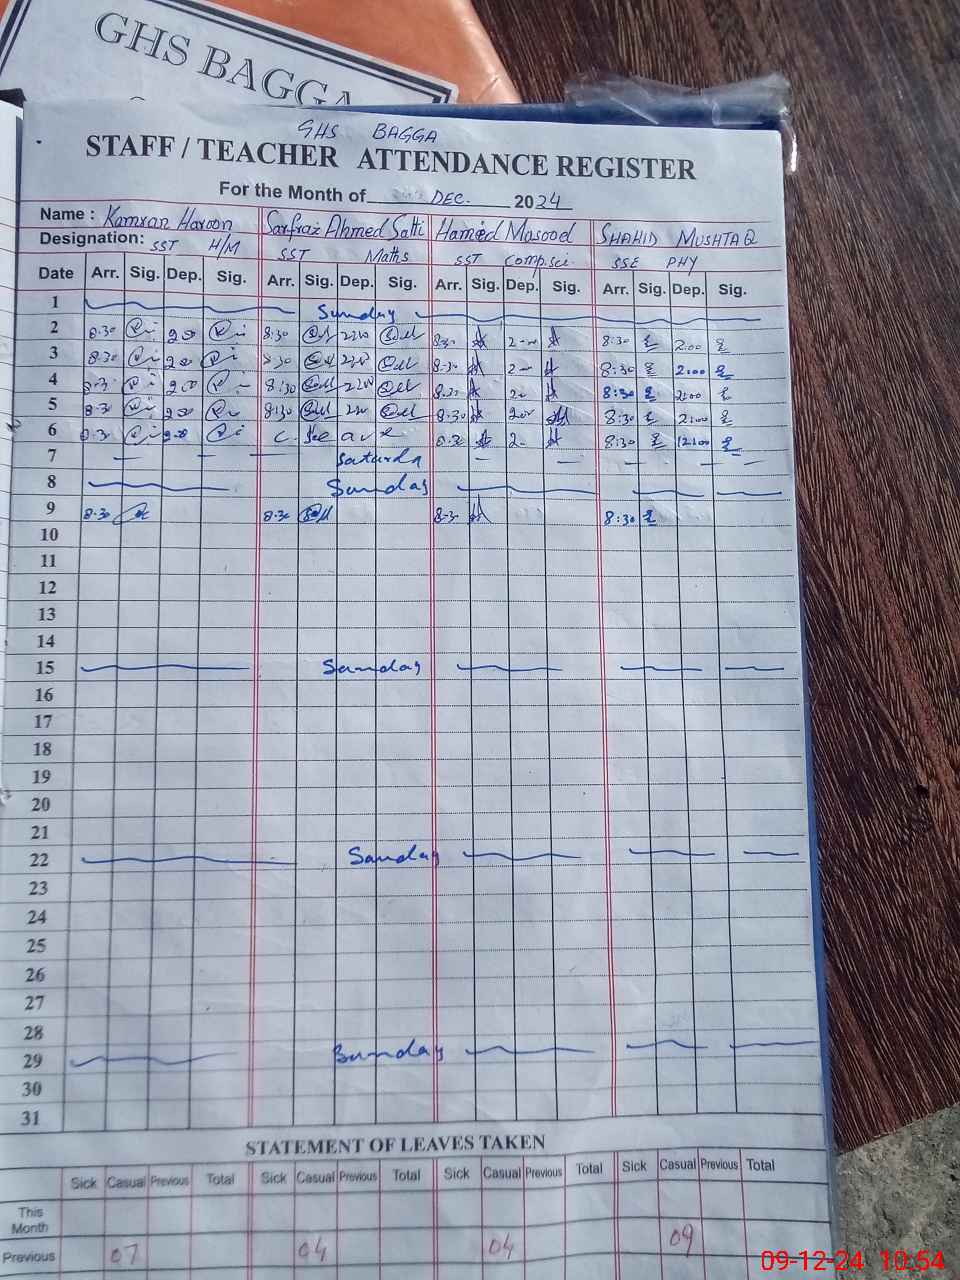 GHS BAGGA
GHS BAGGA
STAFF / TEACHER ATTENDANCE REGISTER
For the Month of DEC. 2024
Name : Kamran Haroon Sarfraz Ahmed Satti Hameed Masood SHAHID MUSHTAQ
Designation: SST H/M SST Maths SST Comp.sci. SSE PHY
Date Arr. Sig. Dep. Sig. Arr. Sig. Dep. Sig. Arr. Sig. Dep. Sig. Arr. Sig. Dep. Sig.
1 Sunday
2 8.30 200 8:30 8:30 8:30 2:00
3 8:30 200 8:30 8:30 8:30 2:00
4 200 8:30 8:30 8:30 2:00
5 8.30 200 8:30 8:30 8:30 2:00
6 C. leave 8:30 12:00
7 Saturda
8 Sunday
9 8.30 8.30 8.30 8:30
10
11
12
13
14
15 Sunday
16
17
18
19
20
21
22 Sunday
23
24
25
26
27
28
29 Sunday
30
31
STATEMENT OF LEAVES TAKEN
Sick Casual Previous Total Sick Casual Previous Total Sick Casual Previous Total Sick Casual Previous Total
This
Month
Previous 07 04 04 09
09-12-24 10:54